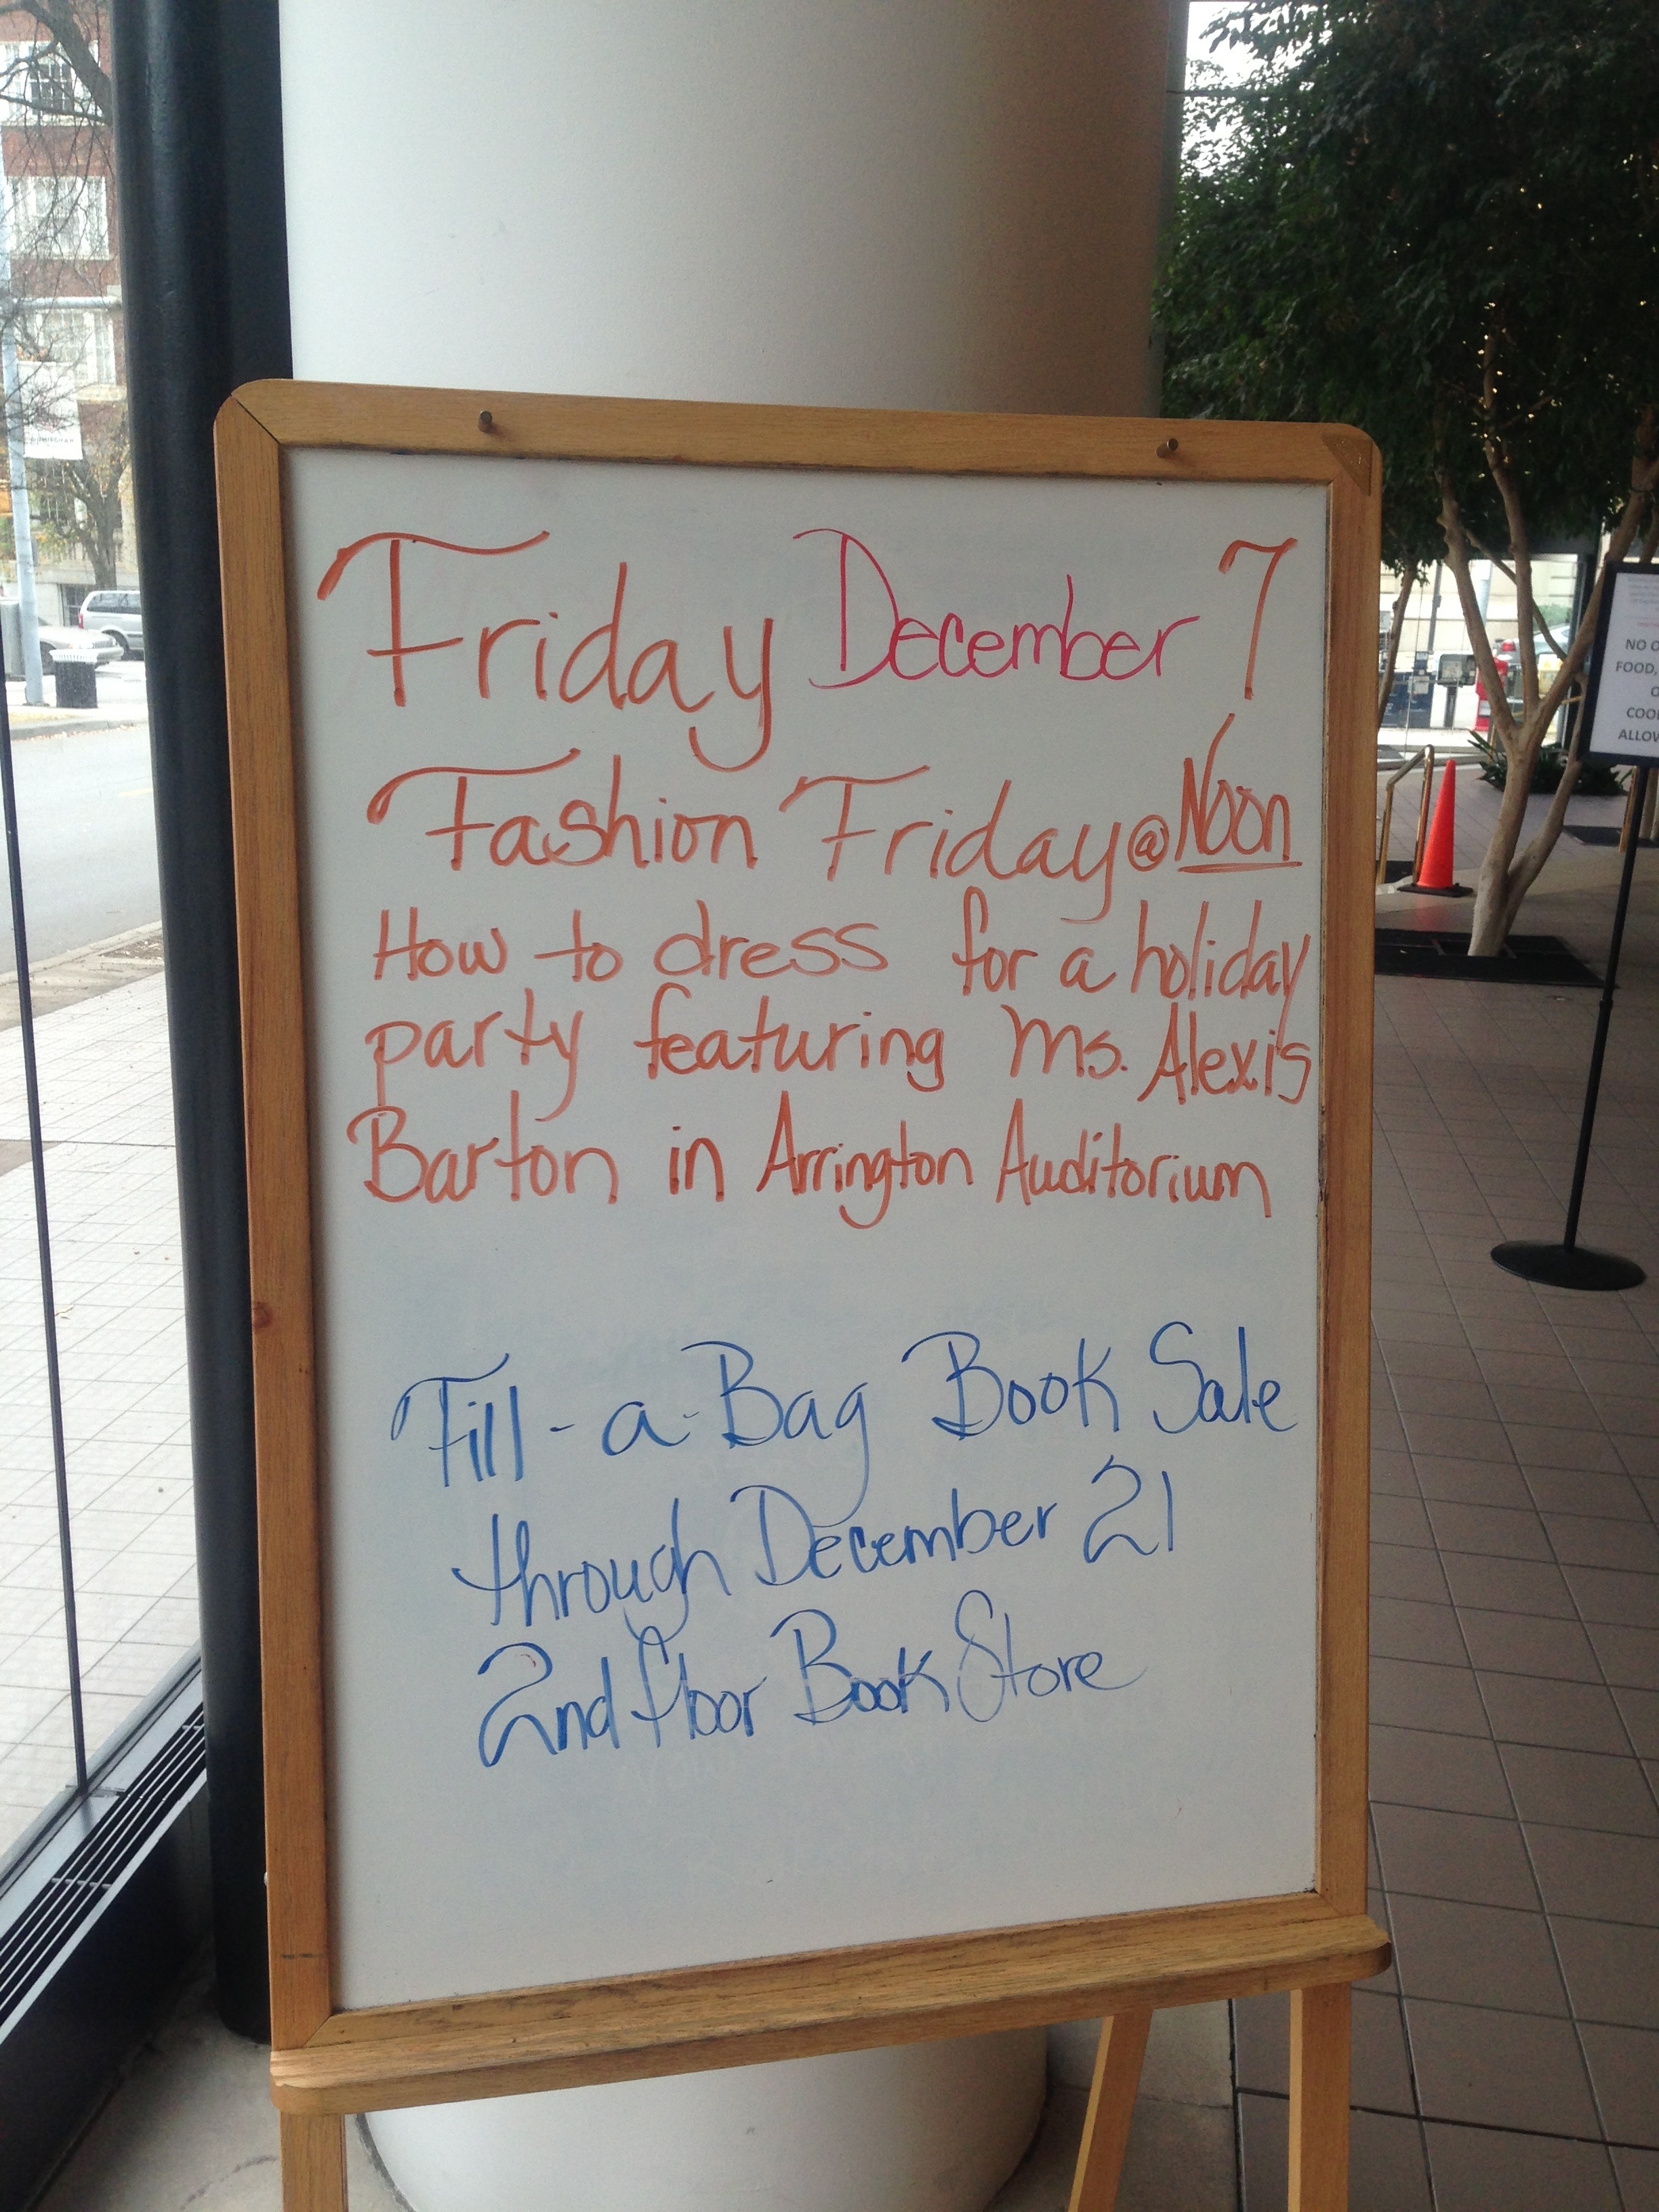 Friday December 7
Fashion Friday @ Noon
How to dress for a holiday
party featuring Ms. Alexis
Barton in Arrington Auditorium
Fill-a-Bag Book Sale
through December 21
2nd floor Book Store
NO
FOOD,